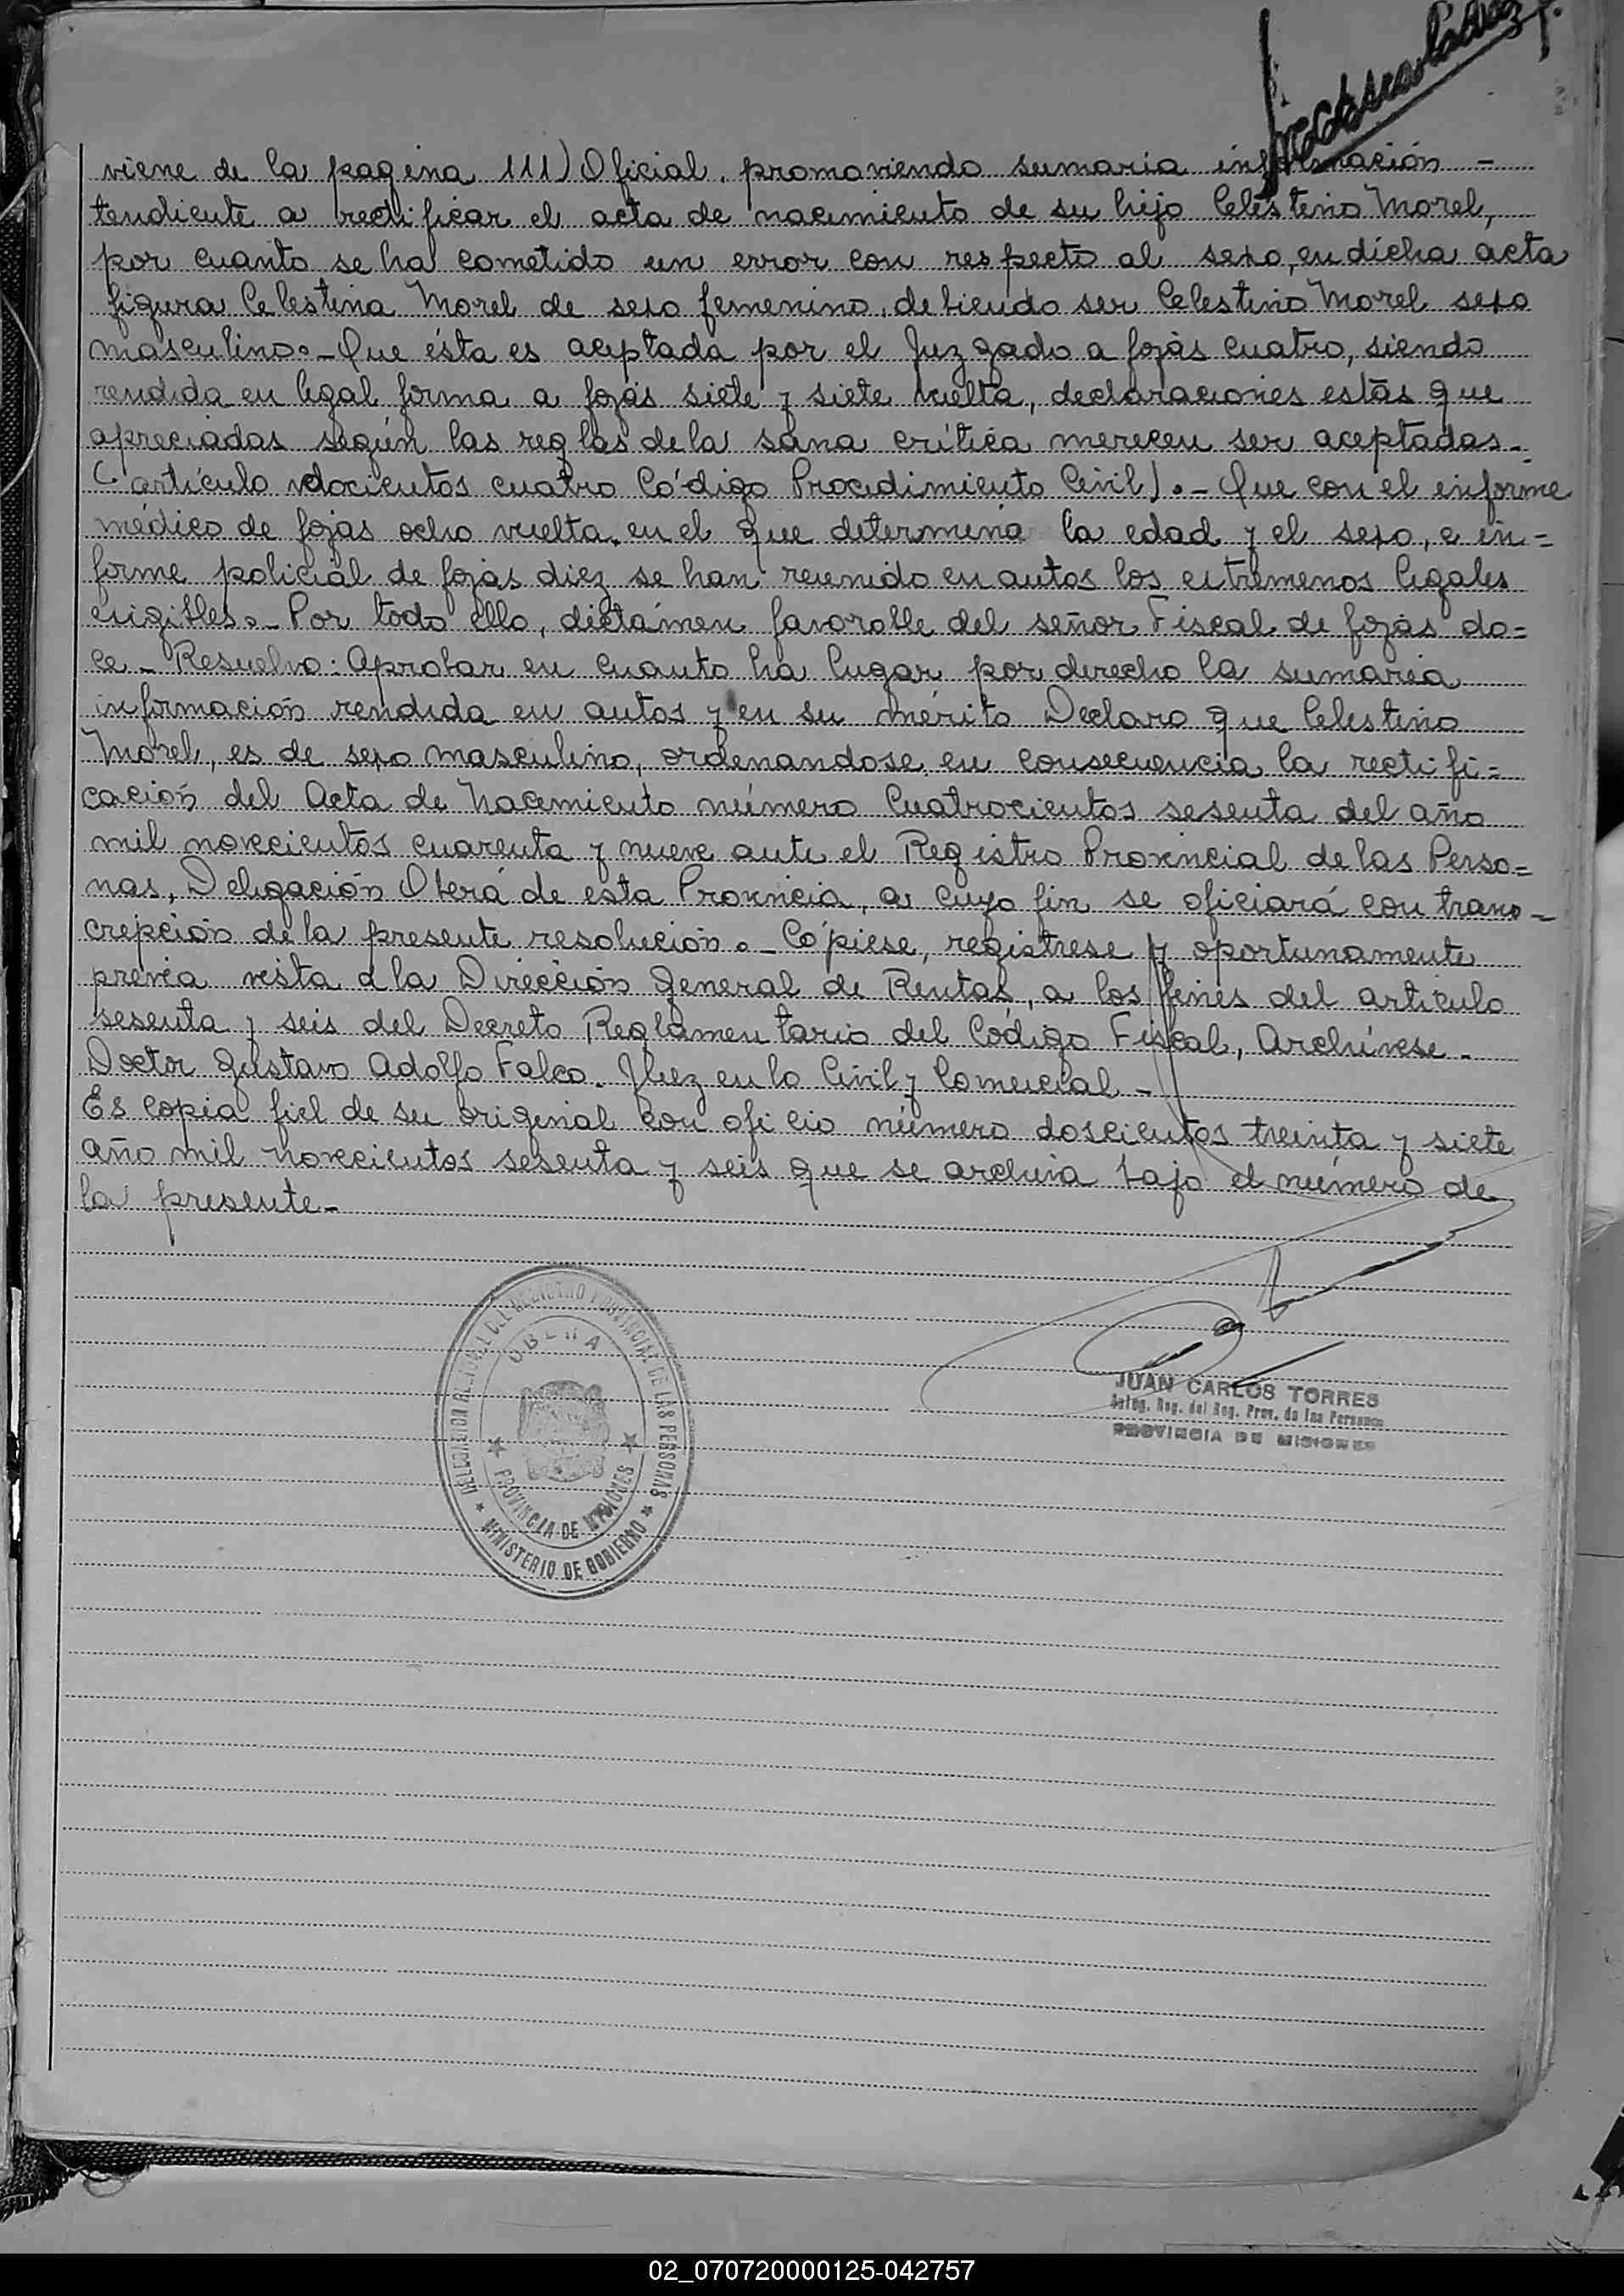 viene de la pagina 111) Oficial, promoviendo sumaria información -
tendiente a rectificar el acta de nacimiento de su hijo Celestino Morel,
por cuanto se ha cometido un error con respecto al sexo, en dicha acta
figura Celestina Morel de sexo femenino, debiendo ser Celestino Morel sexo
masculino.- Que ésta es aceptada por el Juzgado a fojas cuatro, siendo
rendida en legal forma a fojas siete y siete vuelta, declaraciones estás que
apreciadas según las reglas de la sana crítica merecen ser aceptadas.-
(artículo docientos cuatro Código Procedimiento Civil).- Que con el informe
médico de fojas ocho vuelta, en el que determina la edad y el sexo, e in=
forme policial de fojas diez se han reunido en autos los extremenos legales
exigibles.- Por todo ello, dictámen favorable del señor Fiscal de fojas do=
ce - Resuelvo: Aprobar en cuanto ha lugar por derecho la sumaria
información rendida en autos y en su mérito Declaro que Celestino
Morel, es de sexo masculino, ordenandose en consecuencia la rectifi=
cación del Acta de Nacimiento número Cuatrocientos sesenta del año
mil novecientos cuarenta y nueve ante el Registro Provincial de las Perso=
nas, Delegación Oberá de esta Provincia, a cuyo fin se oficiará con trans-
crepción de la presente resolución.- Cópiese, registrese y oportunamente
previa vista a la Dirección General de Rentas, a los fines del articulo
sesenta y seis del Decreto Reglamentario del Código Fiscal, Archívese.-
Doctor Gustavo Adolfo Falco. Juez en lo Civil y Comercial.-
Es copia fiel de su original con oficio número doscientos treinta y siete
año mil novecientos sesenta y seis que se archiva bajo el número de
la presente.-
DELEGACION REGIONAL DEL REGISTRO PROVINCIAL DE LAS PERSONAS
OBERA
PROVINCIA DE MISIONES
MINISTERIO DE GOBIERNO
JUAN CARLOS TORRES
Deleg. Reg. del Reg. Prov. de las Personas
PROVINCIA DE MISIONES
02_070720000125-042757